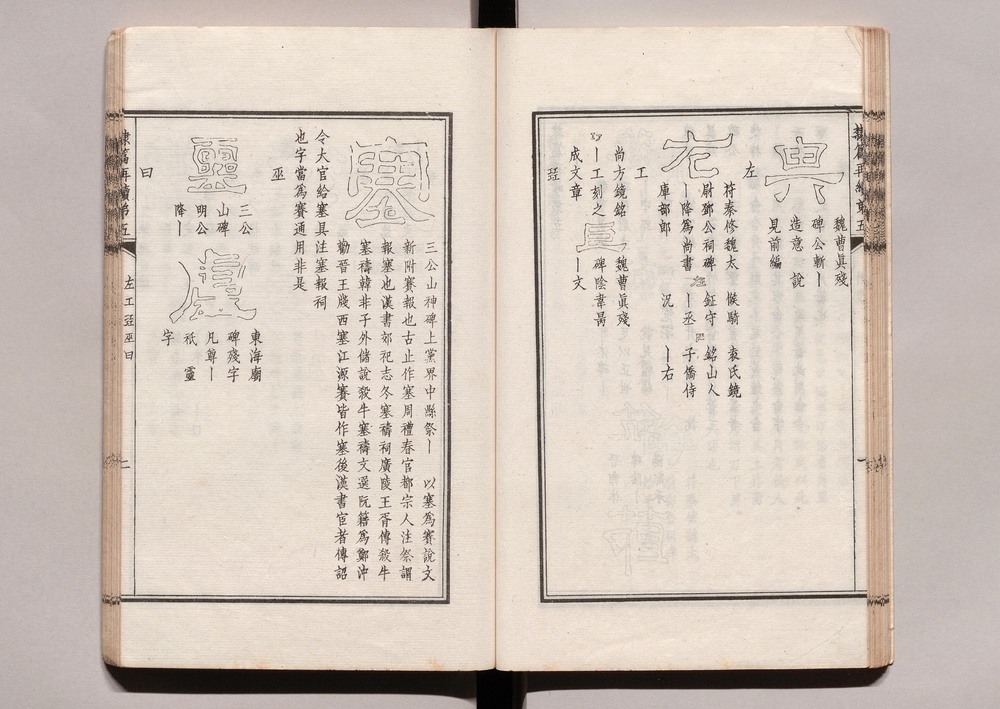 典
魏曹眞殘
碑公斬丨
造意 說
見前編
左
左
苻秦修魏太 候騎 袁氏鏡
尉鄧公祠碑 鉦守 銘山人
丨降爲尚書 丨丞 子僑侍
庫部郎 況 丨右
工
尚方鏡銘
丨工刻之
成文章
魏曹眞殘
碑陰韋昺
丨文
㠭
塞
三公山神碑上黨界中縣祭丨 以塞爲賽說文
新附賽報也古止作塞周禮春官都宗人注祭謂
報塞也漢書郊祀志冬塞禱祠廣陵王胥傳殺牛
塞禱韓非子外儲說殺牛塞禱文選阮籍爲鄭沖
勸晉王牋西塞江源賽皆作塞後漢書宦者傳詔
令大官給塞具注塞報祠
也字當爲賽通用非是
巫
靈
三公
山碑
明公
降丨
東海廟
碑殘字
凡尊丨
祇 靈
字
曰
隸篇再續第五
左工㠭巫曰
二